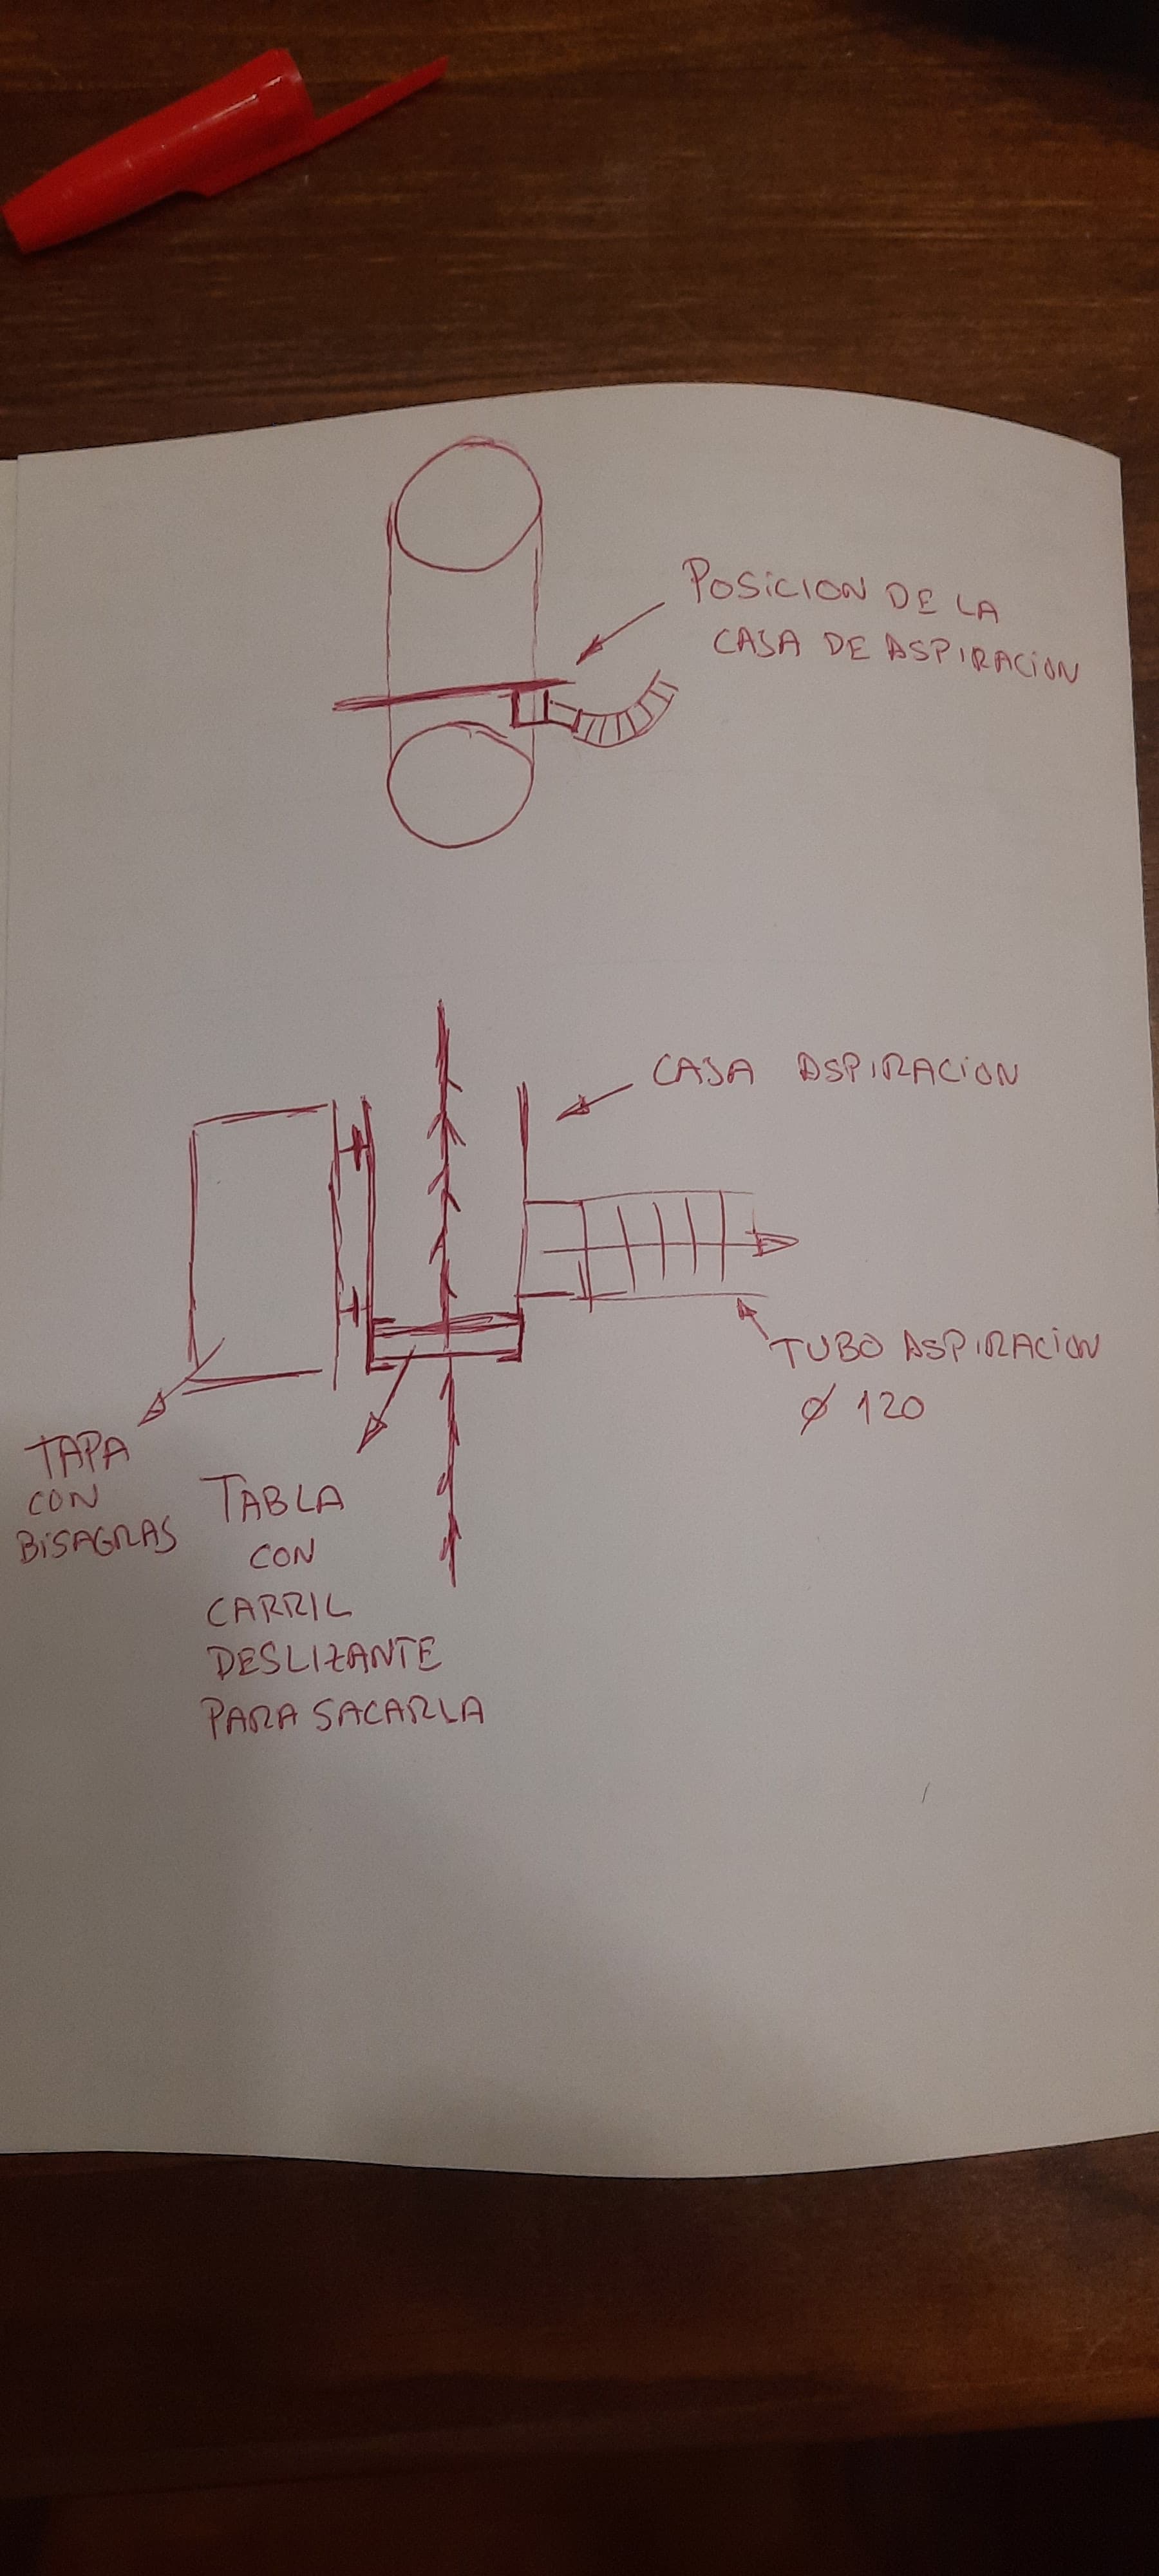 POSICION DE LA
CAJA DE ASPIRACION
CAJA ASPIRACION
TUBO ASPIRACION
Ø 120
TAPA
CON
BISAGRAS
TABLA
CON
CARRIL
DESLIZANTE
PARA SACARLA